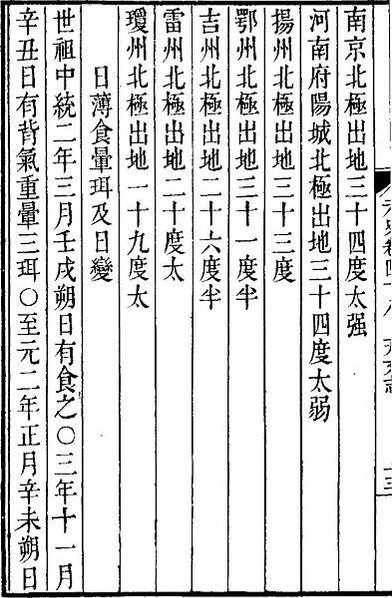 南京北極出地三十四度太强
河南府陽城北極出地三十四度太弱
揚州北極出地三十三度
鄂州北極出地三十一度半
吉州北極出地二十六度半
雷州北極出地二十度太
瓊州北極出地一十九度太
日薄食暈珥及日變
世祖中統二年三月壬戌朔日有食之〇三年十一月
辛丑日有背氣重暈三珥〇至元二年正月辛未朔日